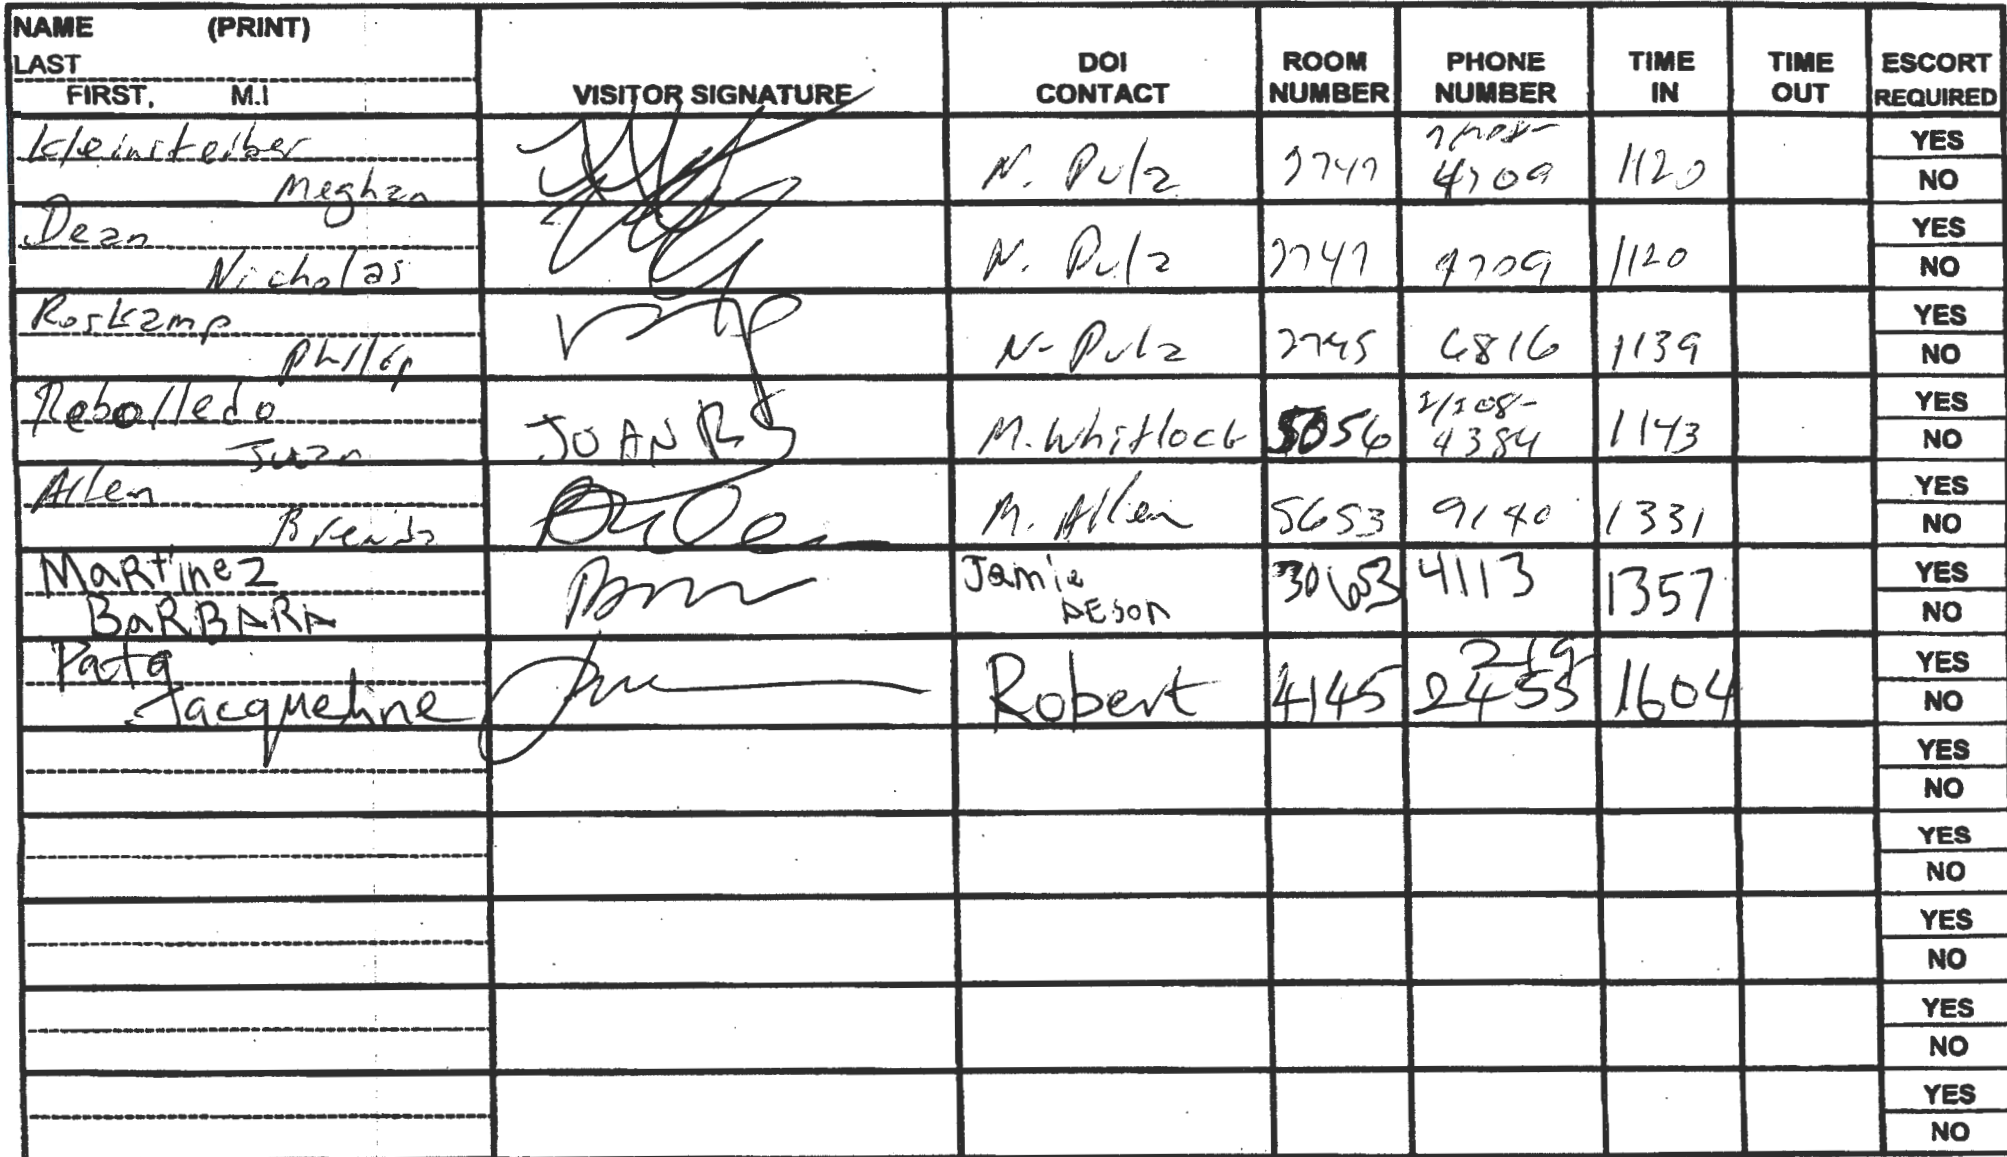 NAME (PRINT)
LAST
FIRST, M.I
VISITOR SIGNATURE
DOI CONTACT
ROOM NUMBER
PHONE NUMBER
TIME IN
TIME OUT
ESCORT REQUIRED
Kleinsteiber
Meghan
N. Pulz
4709
1120
YES
NO
Dean
Nicholas
N. Pulz
4709
1120
YES
NO
Roskamp
Phillip
N. Pulz
6816
1139
YES
NO
Rebolledo
Juan
JUAN R
M. Whitlock
5056
4384
1143
YES
NO
Allen
Brenda
M. Allen
5653
9140
1331
YES
NO
Martinez
BARBARA
Jamie
4113
1357
YES
NO
Jacqueline
Robert
4145
219-
2455
1604
YES
NO
YES
NO
YES
NO
YES
NO
YES
NO
YES
NO